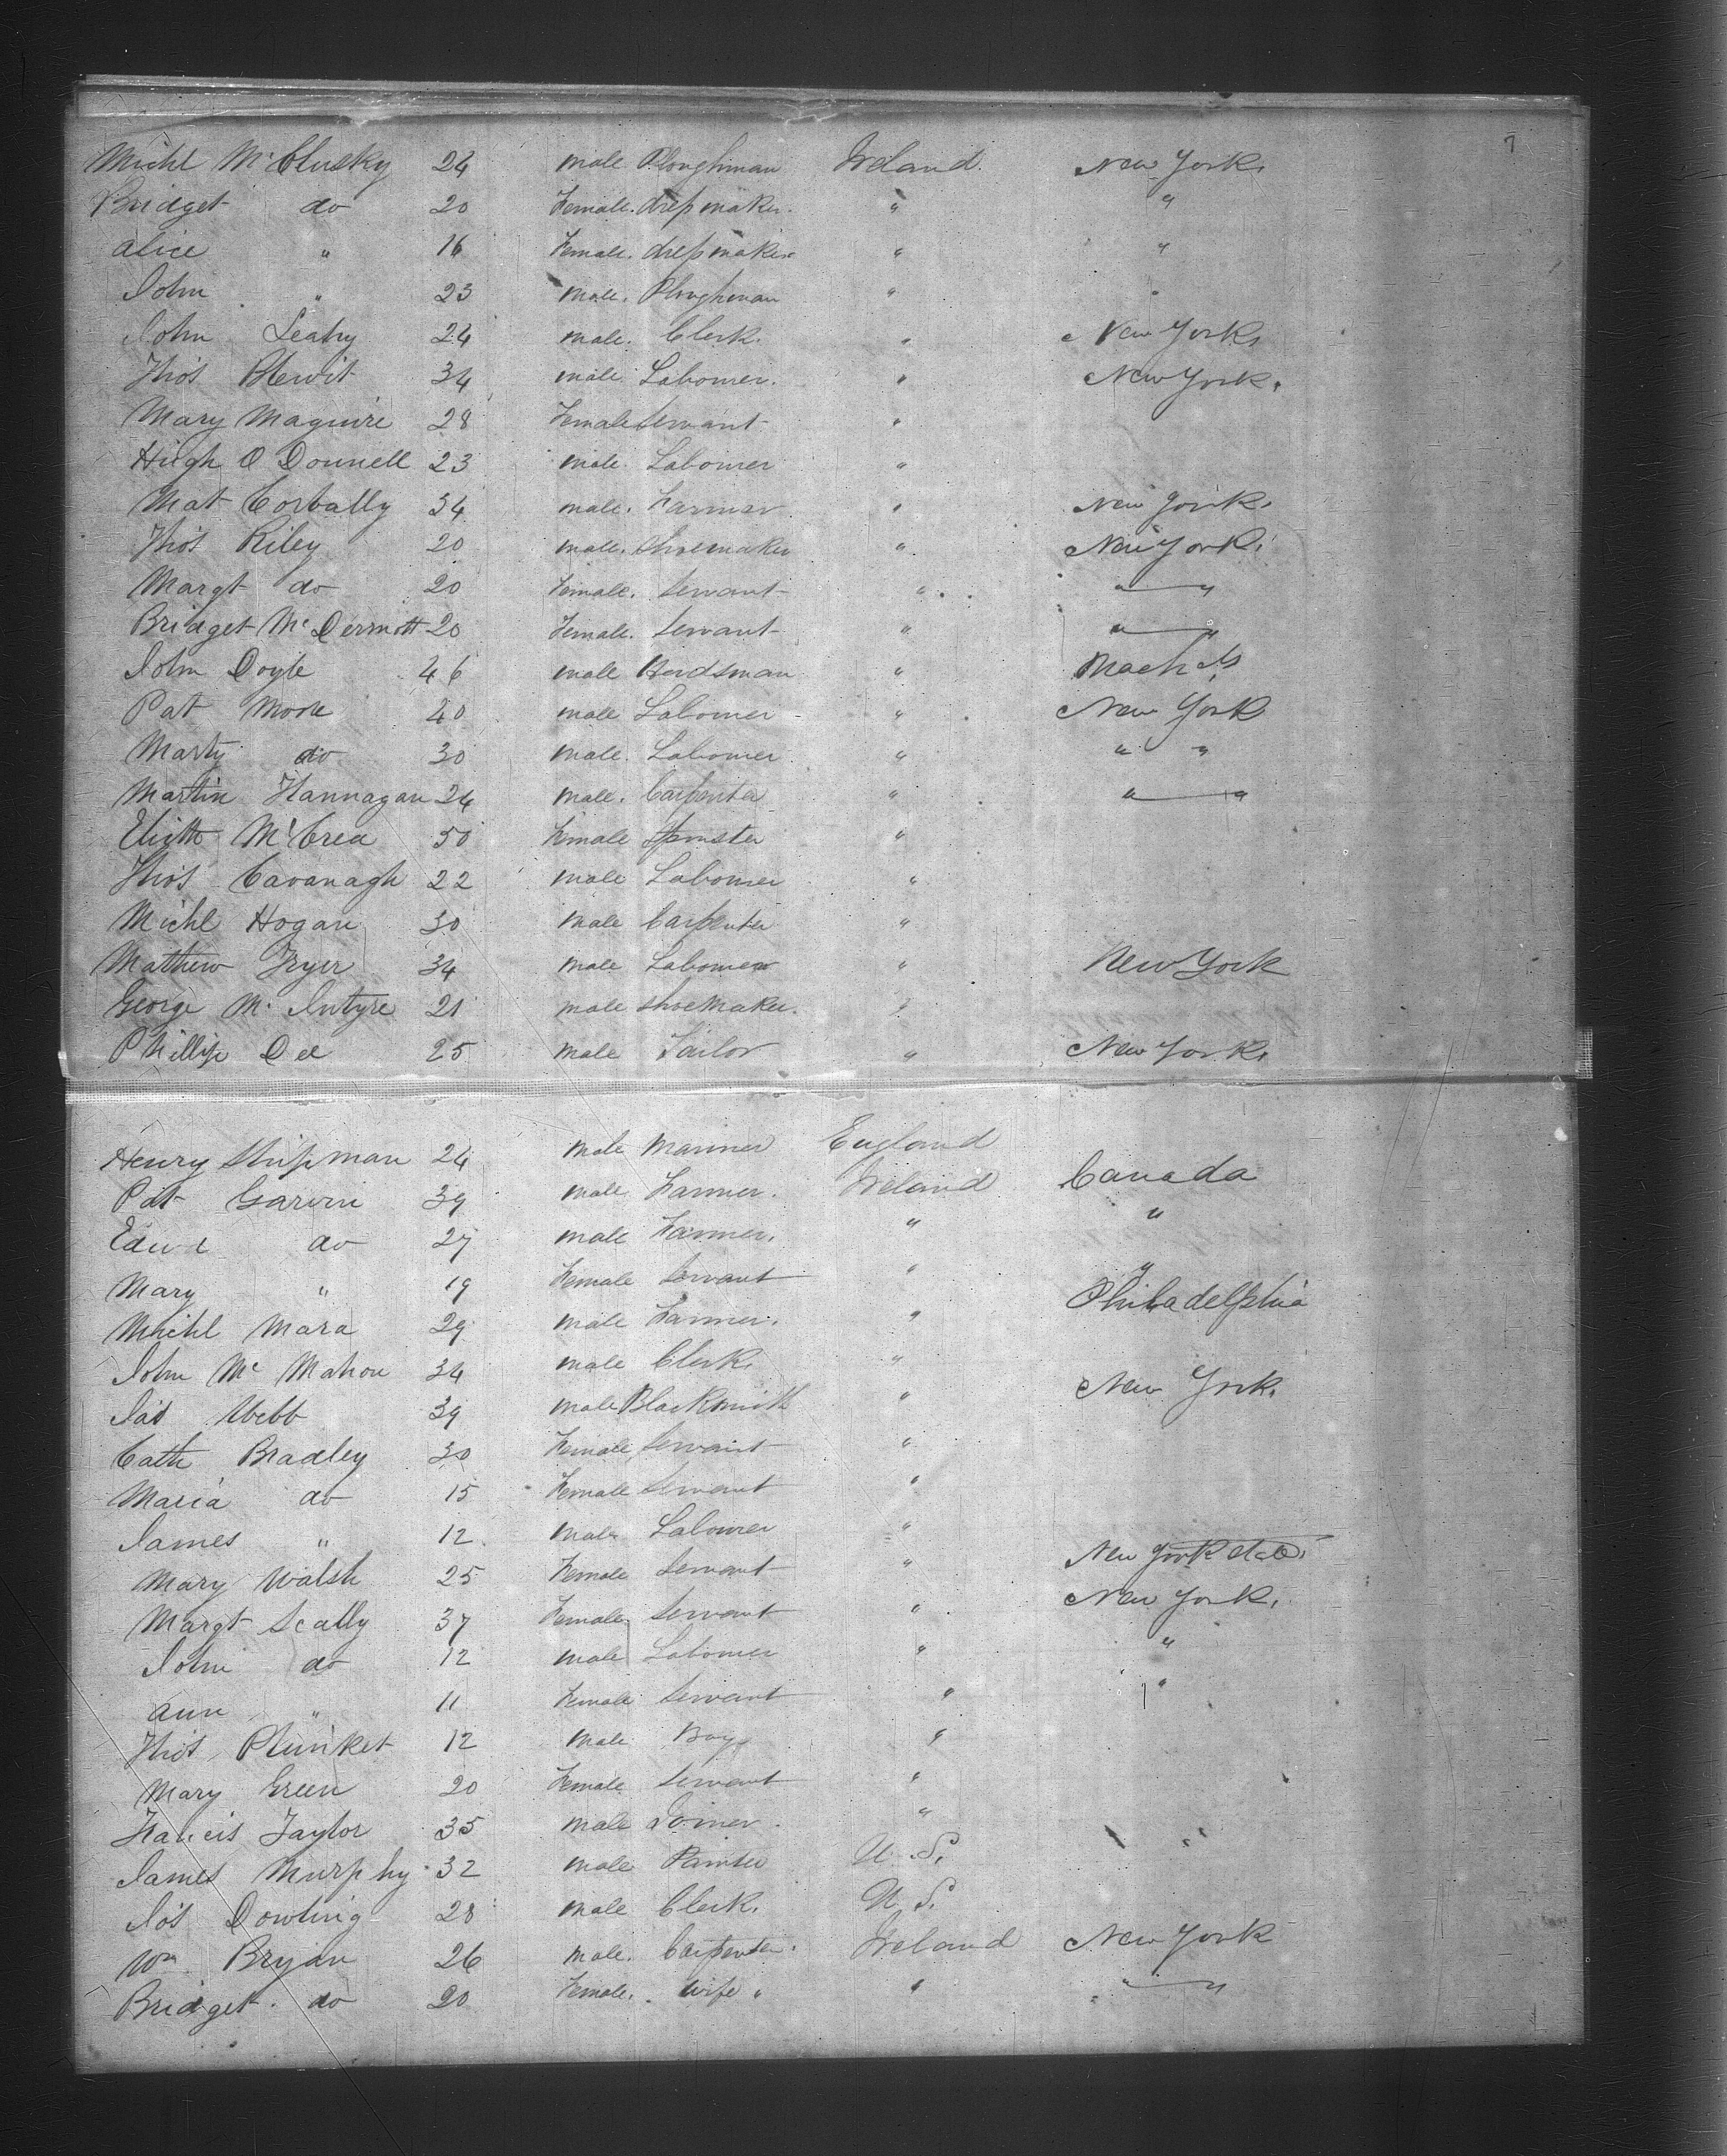 7
Michl McClusky 24 male Ploughman Ireland. New York,
Bridget do 20 Female. dressmaker. " "
Alice " 16 Female. dressmaker " "
John " 23 male. Ploughman " "
John Leahy 24 male. Clerk. " New York,
Thos Blewit 34 male Labourer. " New York.
Mary Maguire 28 Female Servant "
Hugh O Donnell 23 male Labourer "
Mat Corbally 34 male. Farmer " New York.
Thos Riley 20 male. Shoemaker " New York.
Margt do 20 Female. Servant " " "
Bridget McDermott 20 Female. Servant " " "
John Doyle 46 male Herdsman "
Pat Moore 40 male Labourer " New York
Marty do 30 male. Labourer " " "
Martin Hannagan 24 male. Carpenter " " "
Elizth McCrea 50 Female Spinster "
Thos Cavanagh 22 male Labourer "
Michl Hogan 30 male Carpenter "
Mathew Fryer 34 male Labourer " New York
George McIntyre 21 male Shoemaker. "
Phillip Dee 25 male Tailor " New York.
Henry Shipman 24 male Mariner England
Pat Garvin 39 male Farmer. Ireland Canada
Edwd do 27 male Farmer. " "
Mary " 19 Female Servant " "
Michl Mara 29 male Farmer. " Philadelphia
John McMahon 34 male Clerk. "
Jas Webb 39 male Blacksmith " New York.
Cath Bradley 30 Female Servant "
Maria do 15 Female Servant "
James " 12 male Labourer "
Mary Walsh 25 Female Servant " New York State.
Margt Scally 37 Female Servant " New York.
John do 12 male Labourer " "
Ann " 11 Female Servant " "
Thos Plunket 12 male Boy "
Mary Green 20 Female Servant "
Francis Taylor 35 male Joiner "
James Murphy 32 male Painter U. S.
Jos Dowling 28 male Clerk. U. S.
Wm Bryan 26 male. Carpenter. Ireland New York
Bridget do 20 Female. wife " " "